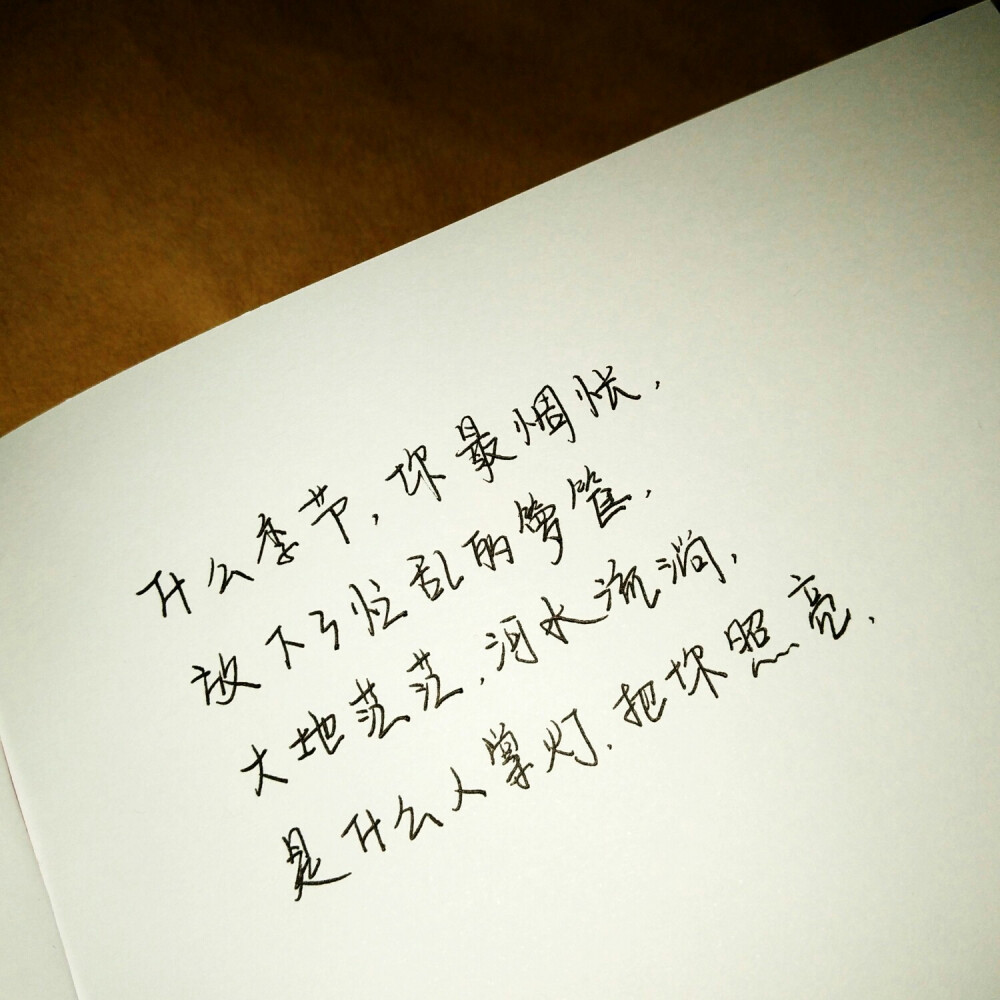 什么季节，你最惆怅，
放下了忙乱的箩筐，
大地茫茫，河水流淌，
是什么人掌灯，把你照亮，